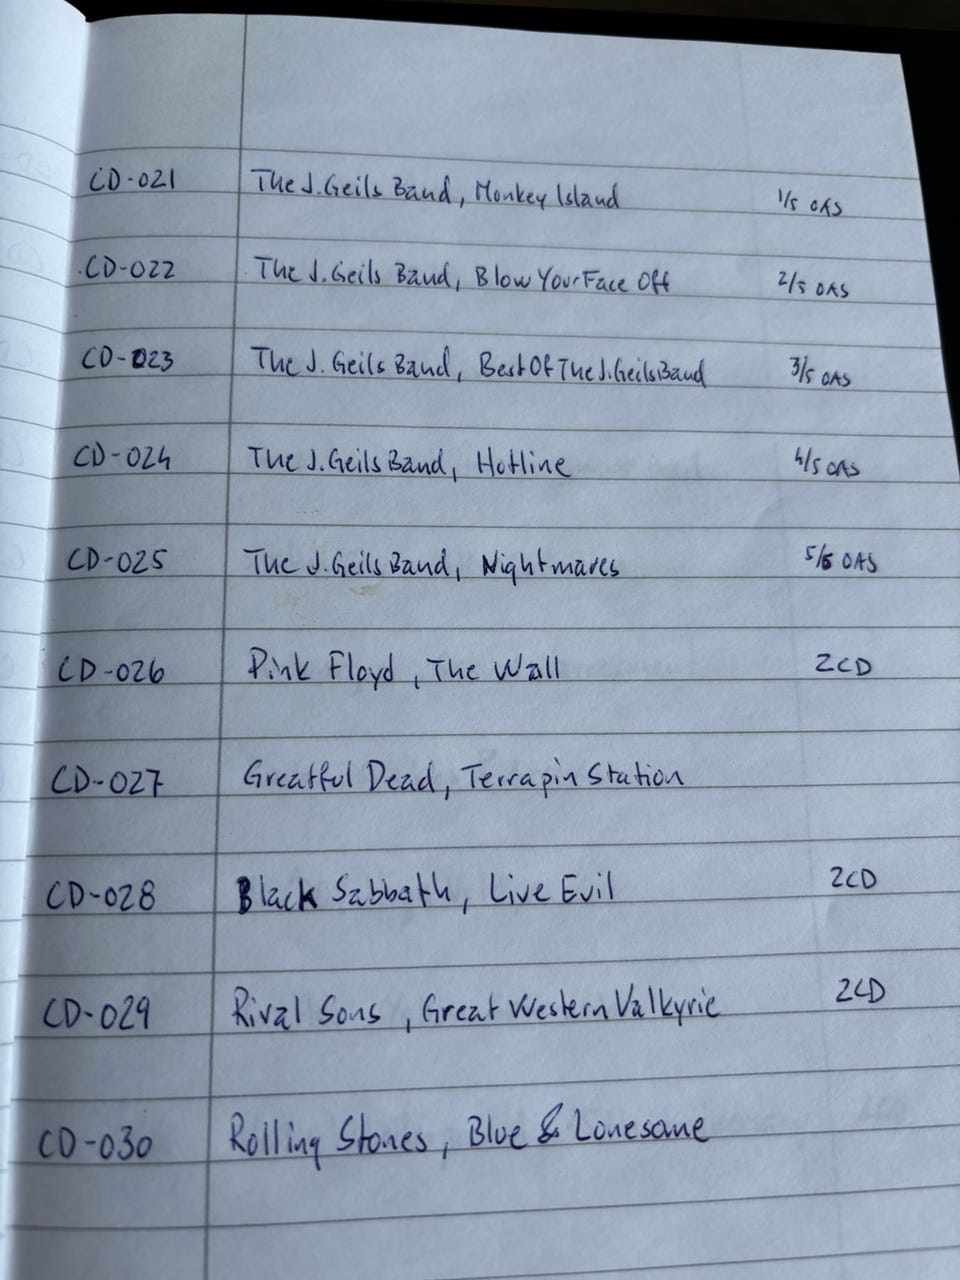 CD-021 The J. Geils Band, Monkey Island 1/5 OAS
CD-022 The J. Geils Band, Blow Your Face Off 2/5 OAS
CD-023 The J. Geils Band, Best Of The J. Geils Band 3/5 OAS
CD-024 The J. Geils Band, Hotline 4/5 OAS
CD-025 The J. Geils Band, Nightmares 5/5 OAS
CD-026 Pink Floyd, The Wall 2CD
CD-027 Greatful Dead, Terrapin Station
CD-028 Black Sabbath, Live Evil 2CD
CD-029 Rival Sons, Great Western Valkyrie 2CD
CD-030 Rolling Stones, Blue & Lonesome